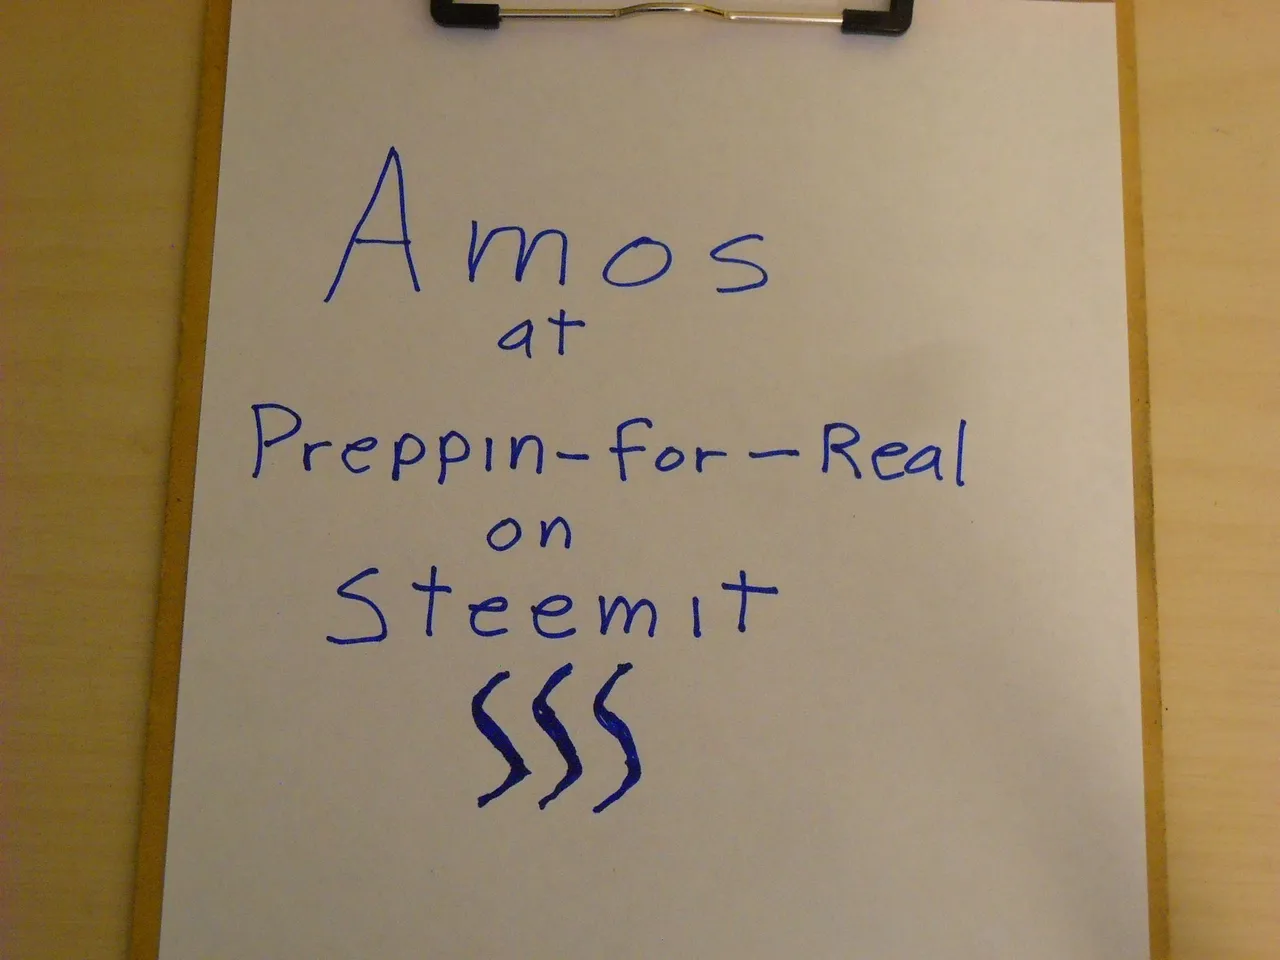 Amos
at
Preppin-for-Real
on
Steemit